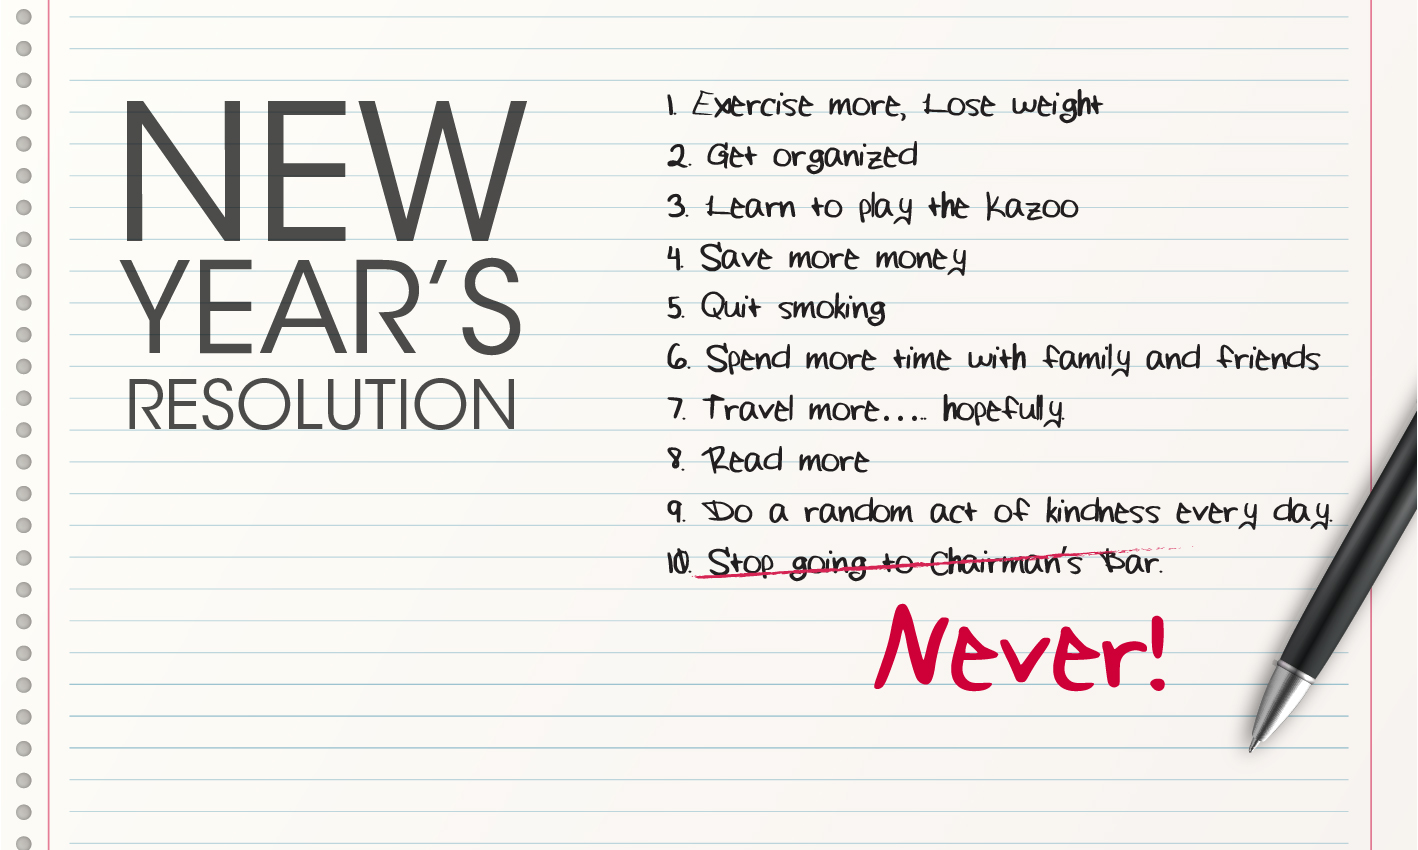 NEW
YEAR'S
RESOLUTION
1. Exercise more, Lose weight
2. Get organized
3. Learn to play the Kazoo
4. Save more money
5. Quit smoking
6. Spend more time with family and friends
7. Travel more..... hopefully.
8. Read more
9. Do a random act of kindness every day.
10. Stop going to Chairman's Bar.
Never!